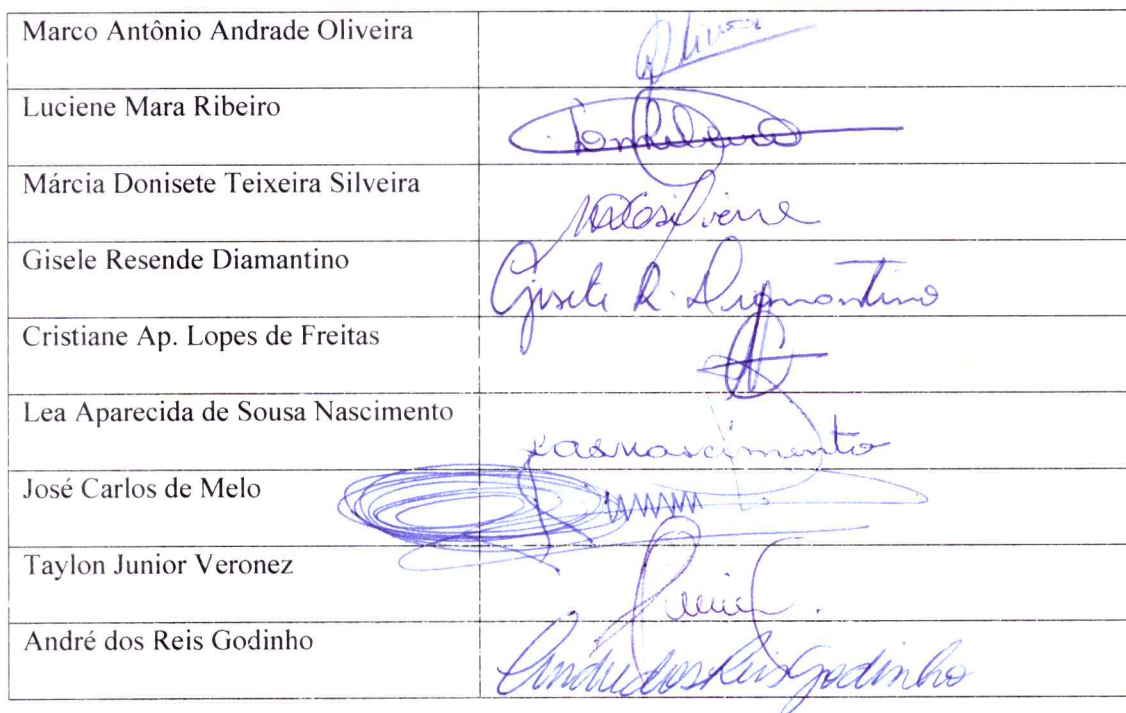 Marco Antônio Andrade Oliveira
Oliveira
Luciene Mara Ribeiro
Márcia Donisete Teixeira Silveira
Gisele Resende Diamantino
Gisele R. Diamantino
Cristiane Ap. Lopes de Freitas
Lea Aparecida de Sousa Nascimento
Lasnascimento
José Carlos de Melo
Taylon Junior Veronez
Junior.
André dos Reis Godinho
André dos Reis Godinho